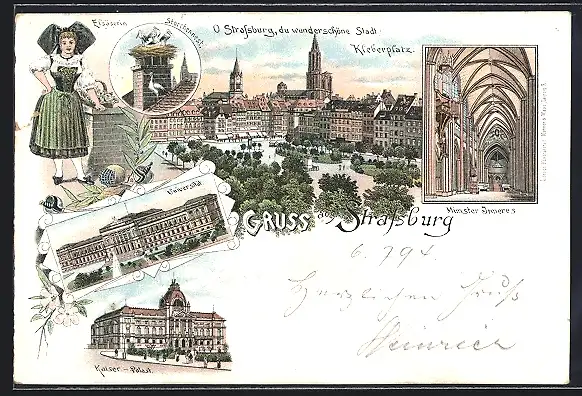 Elsäserin
Storchennest
O Straſsburg, du wunderschöne Stadt
Kleberplatz.
Münster Inneres
Universität
GRUSS aus Straſsburg
6. 7 94.
Herzlichen Gruß
Heinrich
Kaiser-Palast.